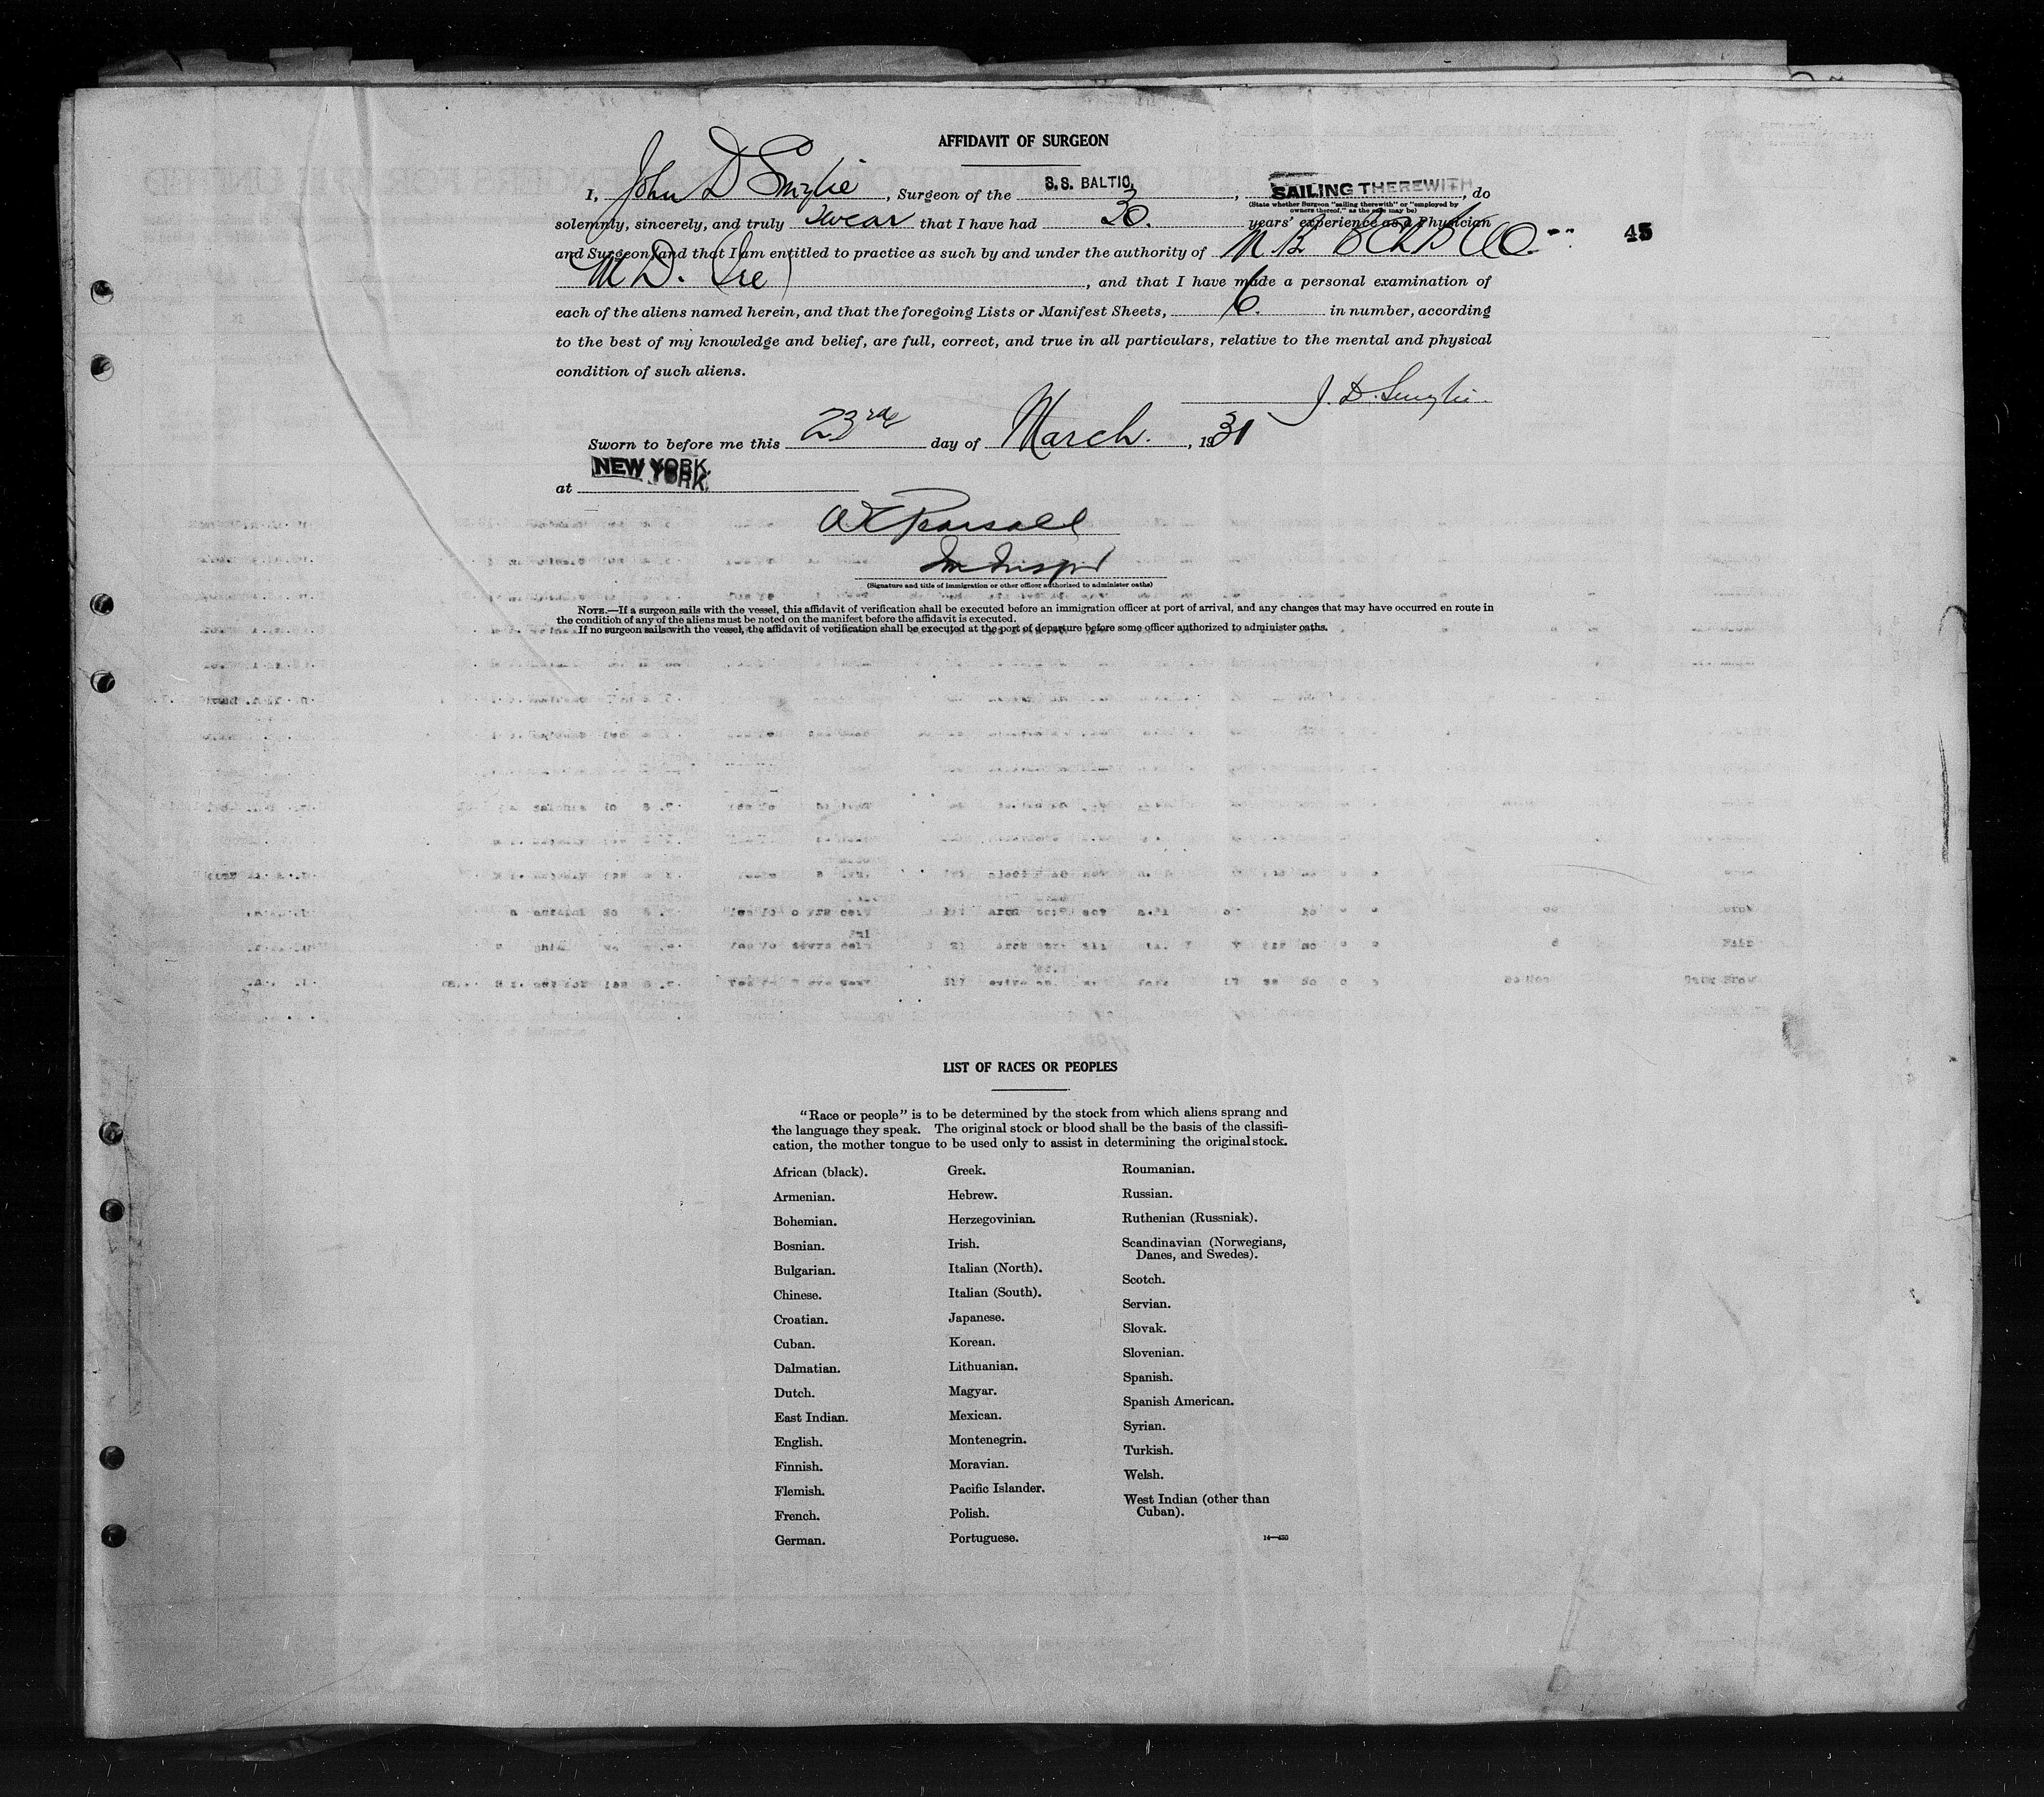 AFFIDAVIT OF SURGEON
I, John D Smylie, Surgeon of the S.S. BALTIC, SAILING THEREWITH, do
(State whether Surgeon "sailing therewith" or "employed by
owners thereof," as the case may be)
solemnly, sincerely, and truly swear that I have had 30. years' experience as a Physician
45
and Surgeon, and that I am entitled to practice as such by and under the authority of M.B.
M.D. (Ire), and that I have made a personal examination of
each of the aliens named herein, and that the foregoing Lists or Manifest Sheets, 6. in number, according
to the best of my knowledge and belief, are full, correct, and true in all particulars, relative to the mental and physical
condition of such aliens.
J. D. Smylie.
Sworn to before me this 23rd day of March., 1931
at NEW YORK.
Pearsall
Im Inspr
(Signature and title of immigration or other officer authorized to administer oaths)
NOTE.—If a surgeon sails with the vessel, this affidavit of verification shall be executed before an immigration officer at port of arrival, and any changes that may have occurred en route in
the condition of any of the aliens must be noted on the manifest before the affidavit is executed.
If no surgeon sails with the vessel, the affidavit of verification shall be executed at the port of departure before some officer authorized to administer oaths.
LIST OF RACES OR PEOPLES
"Race or people" is to be determined by the stock from which aliens sprang and
the language they speak. The original stock or blood shall be the basis of the classifi-
cation, the mother tongue to be used only to assist in determining the original stock.
African (black).
Armenian.
Bohemian.
Bosnian.
Bulgarian.
Chinese.
Croatian.
Cuban.
Dalmatian.
Dutch.
East Indian.
English.
Finnish.
Flemish.
French.
German.
Greek.
Hebrew.
Herzegovinian.
Irish.
Italian (North).
Italian (South).
Japanese.
Korean.
Lithuanian.
Magyar.
Mexican.
Montenegrin.
Moravian.
Pacific Islander.
Polish.
Portuguese.
Roumanian.
Russian.
Ruthenian (Russniak).
Scandinavian (Norwegians,
Danes, and Swedes).
Scotch.
Servian.
Slovak.
Slovenian.
Spanish.
Spanish American.
Syrian.
Turkish.
Welsh.
West Indian (other than
Cuban).
14—430